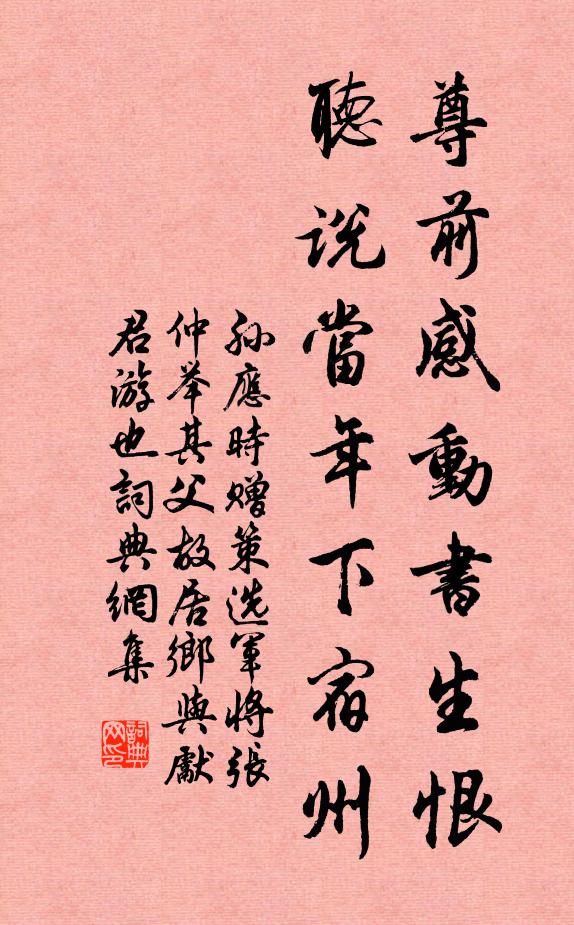 尊前感動書生恨
聽說當年下宿州
孫應時贈策选軍将張
仲举其父故居鄉與獻
君游也詞典網集
詞典网印